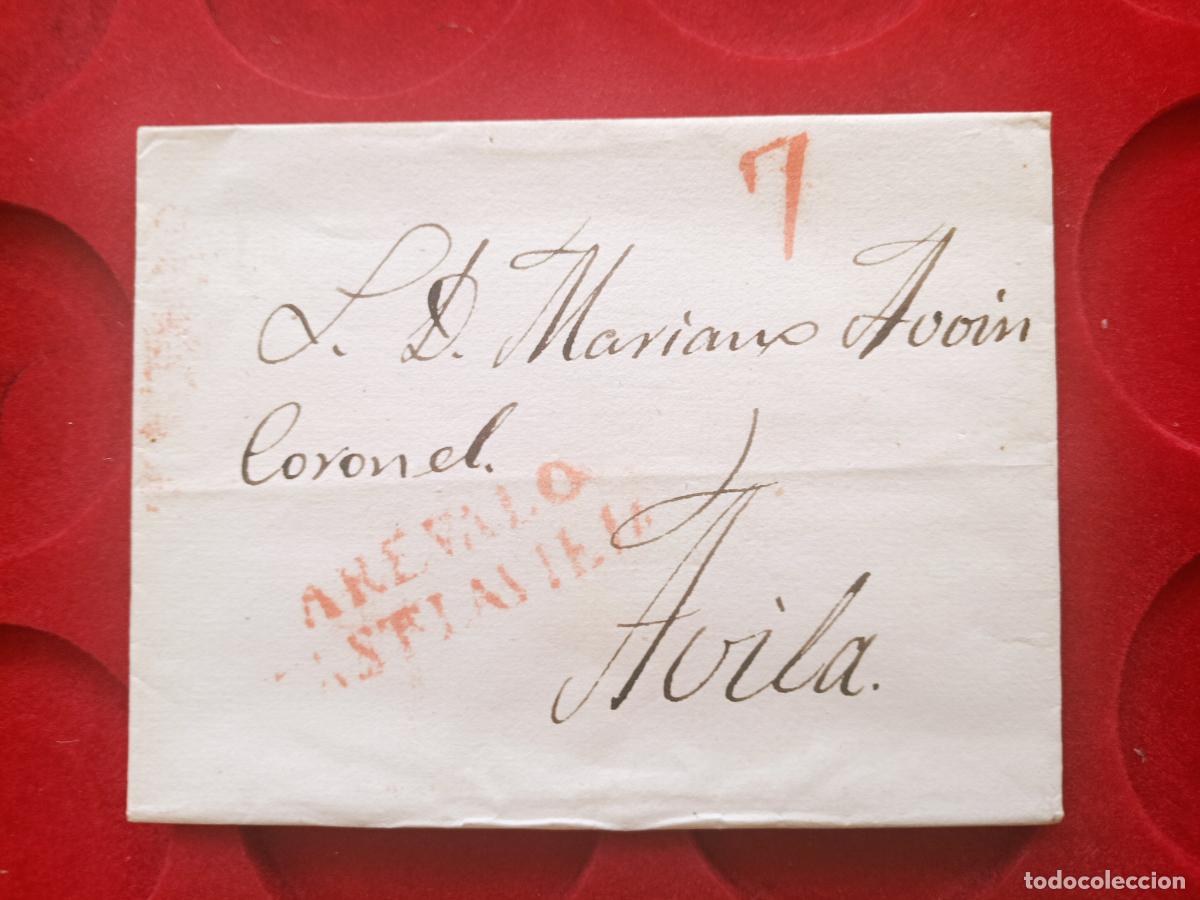 7
S. D. Mariano Avoin
Coronel.
AREVALO
CASTLAVIEJA
Avila.
todocoleccion